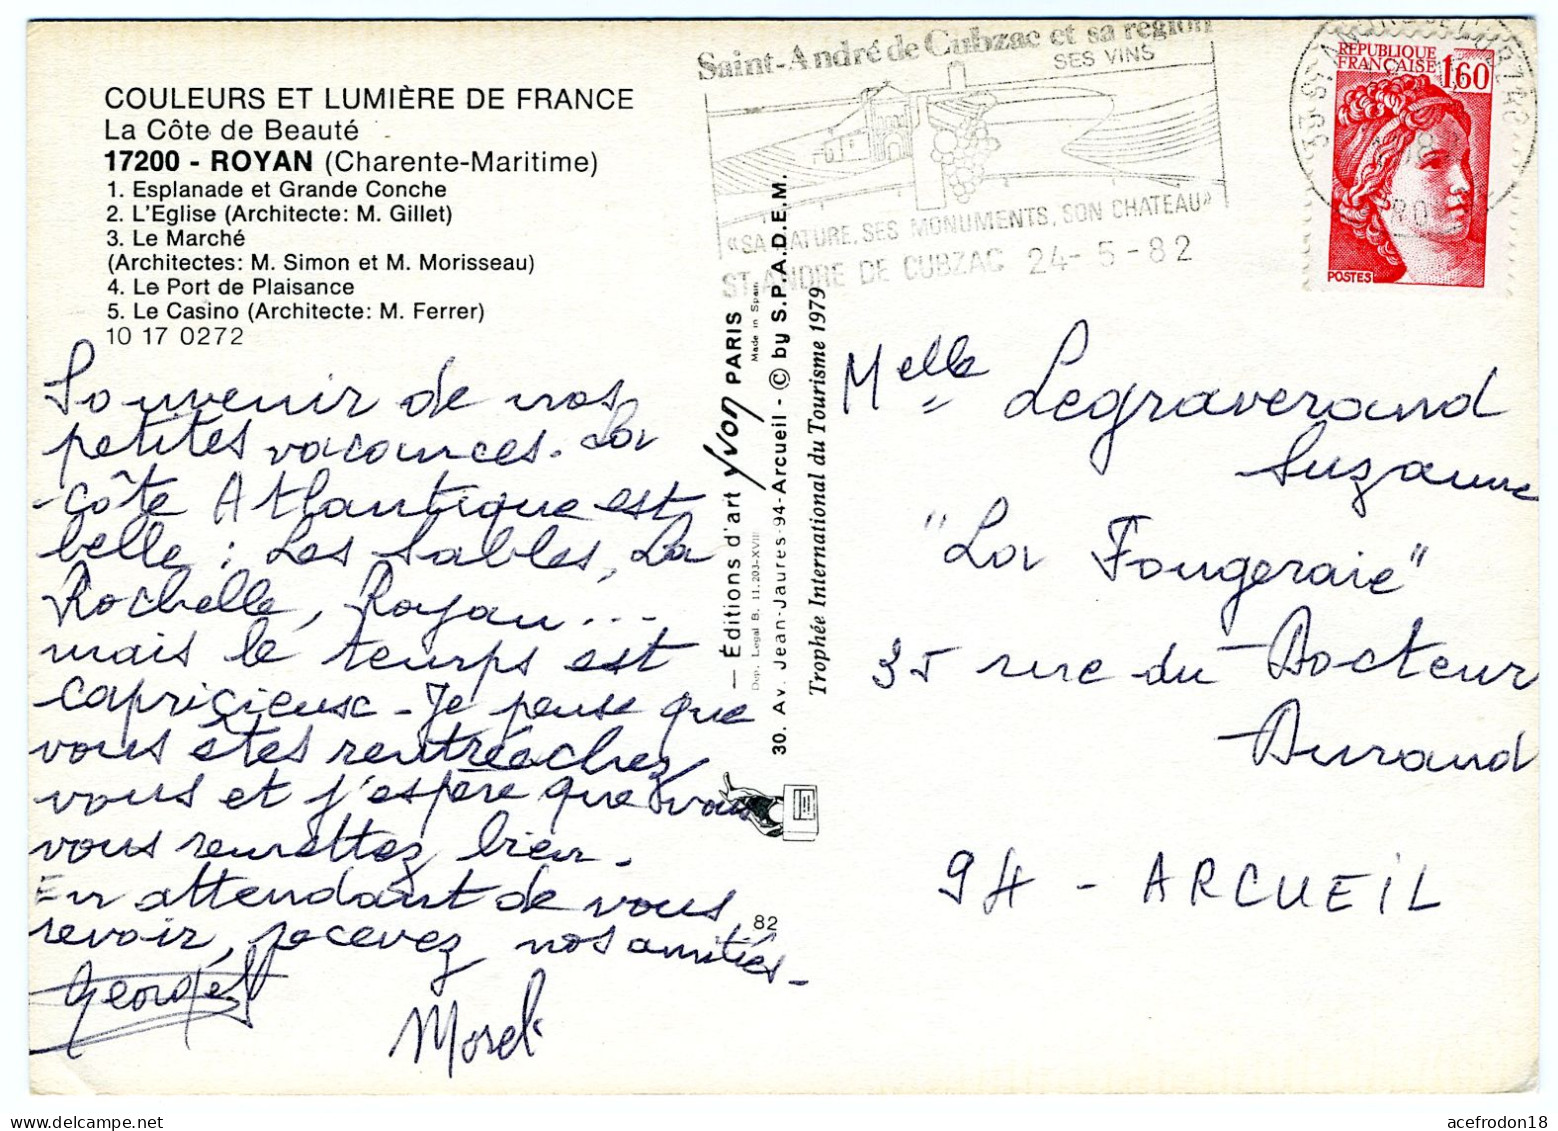 COULEURS ET LUMIÈRE DE FRANCE
La Côte de Beauté
17200 - ROYAN (Charente-Maritime)
1. Esplanade et Grande Conche
2. L'Eglise (Architecte: M. Gillet)
3. Le Marché
(Architectes: M. Simon et M. Morisseau)
4. Le Port de Plaisance
5. Le Casino (Architecte: M. Ferrer)
10 17 0272
Souvenir de nos
petites vacances. La
côte Atlantique est
belle : Les Sables, La
Rochelle, Royan...
mais le temps est
capricieux - Je pense que
vous êtes rentrée chez
vous et j'espère que vous
vous remettez bien.
En attendant de vous
revoir, recevez nos amitiés -
Georges
Morel
82
— Éditions d'art yvon PARIS
Dep. Legal B. 11.203-XVIII
Made in Spain
30. Av. Jean-Jaures-94-Arcueil - © by S.P.A.D.E.M.
Trophée International du Tourisme 1979
Saint-André de Cubzac et sa région
SES VINS
«SA NATURE, SES MONUMENTS, SON CHATEAU»
ST-ANDRE DE CUBZAC 24-5-82
RÉPUBLIQUE
FRANÇAISE 1,60
POSTES
Melle Legraverand
Suzanne
"La Fougeraie"
35 rue du Docteur
Durand
94 - ARCUEIL
acefrodon18